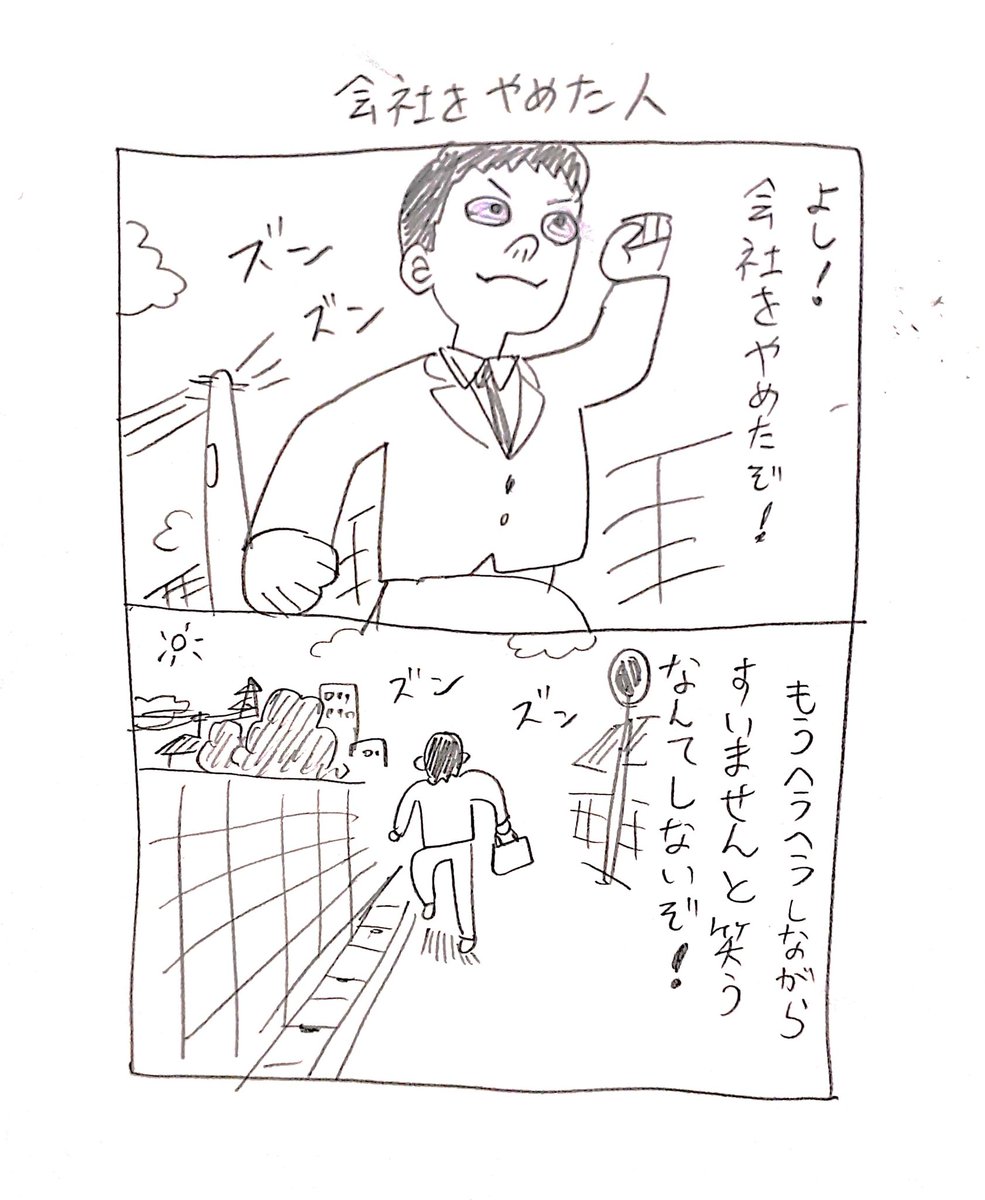 会社をやめた人
よし!
会社をやめたぞ!
ズン
ズン
もうヘラヘラしながら
すいませんと笑う
なんてしないぞ!
ズン
ズン